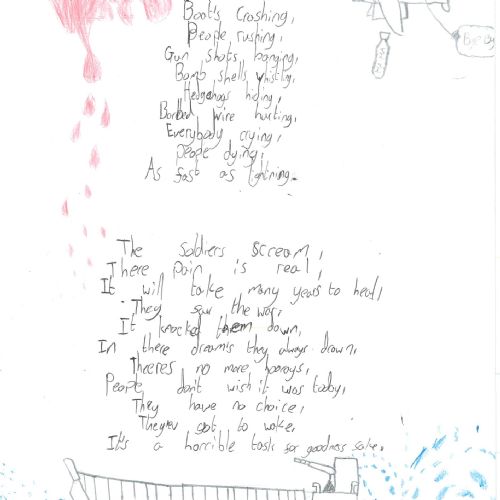 Boot's Crashing,
People rushing,
Gun shots banging,
Bomb shells whistling,
Hedgehogs hiding,
Barbed wire hurting,
Everybody crying,
people dying,
As fast as lightning.
The soldiers scream,
There pain is real,
It will take many years to heal,
They saw the war,
It knocked them down,
In there dreams they always drown,
Theres no more horays,
People don't wish it was today,
They have no choice,
They've got to wake,
It's a horrible task for goodness sake.